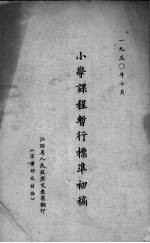 一九五〇年七月
小學課程暫行標準初稿
江西省人民政府文教廳翻印
（僅備研究討論）